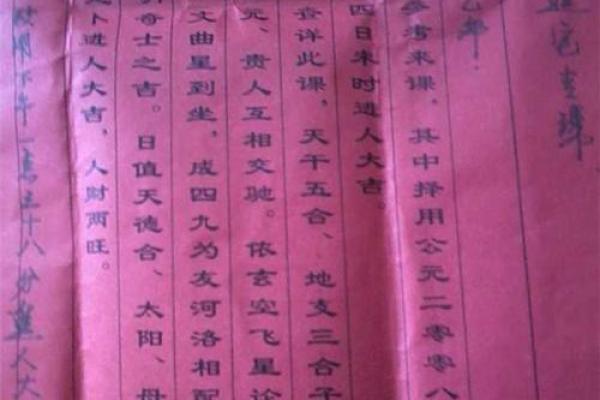 宅
年
参考来课，其中择用公元二零零八
四日未时进人大吉。
查详此课，天干五合、地支三合子
元、贵人互相交驰。依玄空飞星论
文曲星到坐，成四九为友河洛相配
奇士之吉。日值天德合、太阳、母
卜进人大吉，人财两旺。
用下午一点三十八分 人大